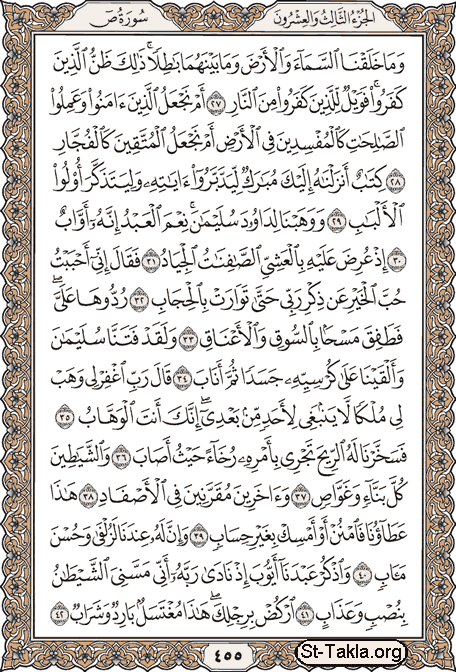 سُورَةُ صٓ الجُزْءُ الثَّالِثُ وَالعِشْرُونَ
وَمَا خَلَقْنَا ٱلسَّمَآءَ وَٱلْأَرْضَ وَمَا بَيْنَهُمَا بَٰطِلًا ۚ ذَٰلِكَ ظَنُّ ٱلَّذِينَ
كَفَرُوا۟ ۚ فَوَيْلٌ لِّلَّذِينَ كَفَرُوا۟ مِنَ ٱلنَّارِ ٢٧ أَمْ نَجْعَلُ ٱلَّذِينَ ءَامَنُوا۟ وَعَمِلُوا۟
ٱلصَّٰلِحَٰتِ كَٱلْمُفْسِدِينَ فِى ٱلْأَرْضِ أَمْ نَجْعَلُ ٱلْمُتَّقِينَ كَٱلْفُجَّارِ
٢٨ كِتَٰبٌ أَنزَلْنَٰهُ إِلَيْكَ مُبَٰرَكٌ لِّيَدَّبَّرُوٓا۟ ءَايَٰتِهِۦ وَلِيَتَذَكَّرَ أُو۟لُوا۟
ٱلْأَلْبَٰبِ ٢٩ وَوَهَبْنَا لِدَاوُۥدَ سُلَيْمَٰنَ ۚ نِعْمَ ٱلْعَبْدُ ۖ إِنَّهُۥٓ أَوَّابٌ
٣٠ إِذْ عُرِضَ عَلَيْهِ بِٱلْعَشِىِّ ٱلصَّٰفِنَٰتُ ٱلْجِيَادُ ٣١ فَقَالَ إِنِّىٓ أَحْبَبْتُ
حُبَّ ٱلْخَيْرِ عَن ذِكْرِ رَبِّى حَتَّىٰ تَوَارَتْ بِٱلْحِجَابِ ٣٢ رُدُّوهَا عَلَىَّ ۖ
فَطَفِقَ مَسْحًۢا بِٱلسُّوقِ وَٱلْأَعْنَاقِ ٣٣ وَلَقَدْ فَتَنَّا سُلَيْمَٰنَ
وَأَلْقَيْنَا عَلَىٰ كُرْسِيِّهِۦ جَسَدًا ثُمَّ أَنَابَ ٣٤ قَالَ رَبِّ ٱغْفِرْ لِى وَهَبْ
لِى مُلْكًا لَّا يَنۢبَغِى لِأَحَدٍ مِّنۢ بَعْدِىٓ ۖ إِنَّكَ أَنتَ ٱلْوَهَّابُ ٣٥
فَسَخَّرْنَا لَهُ ٱلرِّيحَ تَجْرِى بِأَمْرِهِۦ رُخَآءً حَيْثُ أَصَابَ ٣٦ وَٱلشَّيَٰطِينَ
كُلَّ بَنَّآءٍ وَغَوَّاصٍ ٣٧ وَءَاخَرِينَ مُقَرَّنِينَ فِى ٱلْأَصْفَادِ ٣٨ هَٰذَا
عَطَآؤُنَا فَٱمْنُنْ أَوْ أَمْسِكْ بِغَيْرِ حِسَابٍ ٣٩ وَإِنَّ لَهُۥ عِندَنَا لَزُلْفَىٰ وَحُسْنَ
مَـَٔابٍ ٤٠ وَٱذْكُرْ عَبْدَنَآ أَيُّوبَ إِذْ نَادَىٰ رَبَّهُۥٓ أَنِّى مَسَّنِىَ ٱلشَّيْطَٰنُ
بِنُصْبٍ وَعَذَابٍ ٤١ ٱرْكُضْ بِرِجْلِكَ ۖ هَٰذَا مُغْتَسَلٌۢ بَارِدٌ وَشَرَابٌ ٤٢
٤٥٥
St-Takla.org